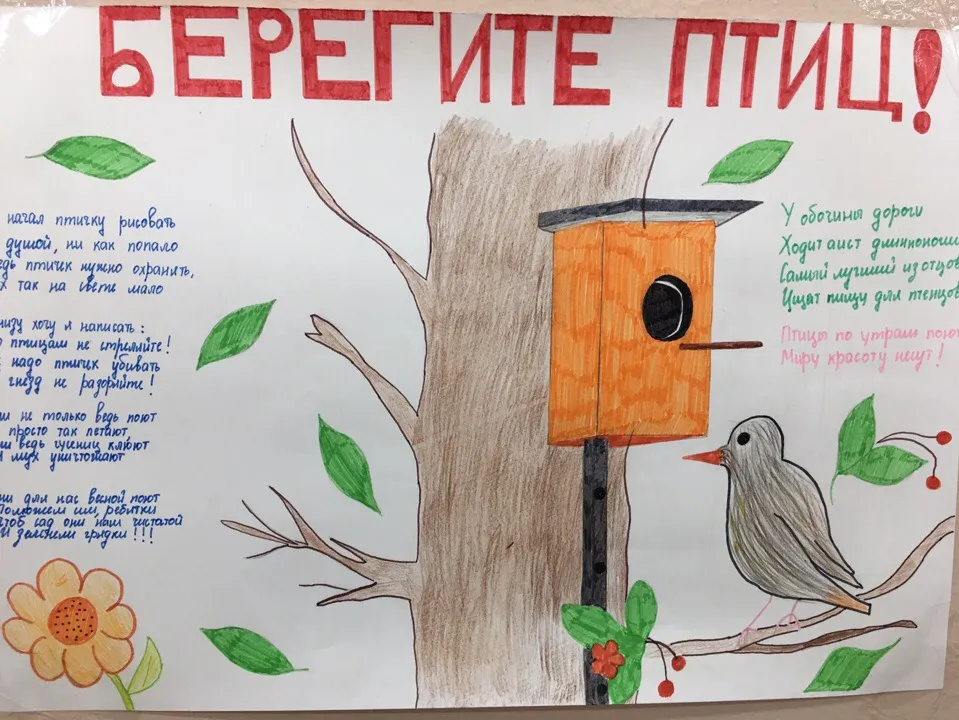 БЕРЕГИТЕ ПТИЦ!
начал птичку рисовать
душой, ни как попало
птичек нужно охранить,
так на свете мало
хочу я написать:
птицам не стреляйте!
надо птичек убивать
гнезд не разоряйте!
не только ведь поют
просто так летают
ведь гусениц клюют
мух уничтожают
для нас весной поют
Поможем им, ребятки
чтоб сад они наш
И грядки!!!
У обочины дороги
Ходит аист
Самый лучший из отцов
Ищет пищу для птенцов
Птицы по утрам поют
Миру красоту несут!